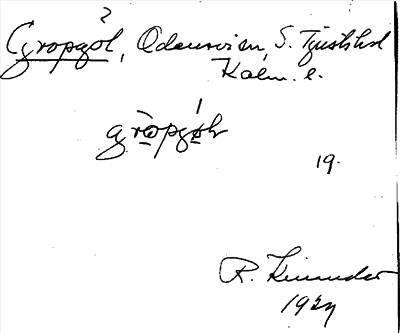 ?
Gropgöl, Odensvien, S. Tjusts hd
Kalm. l.
gròpgöl
19.
R. Linder
1927